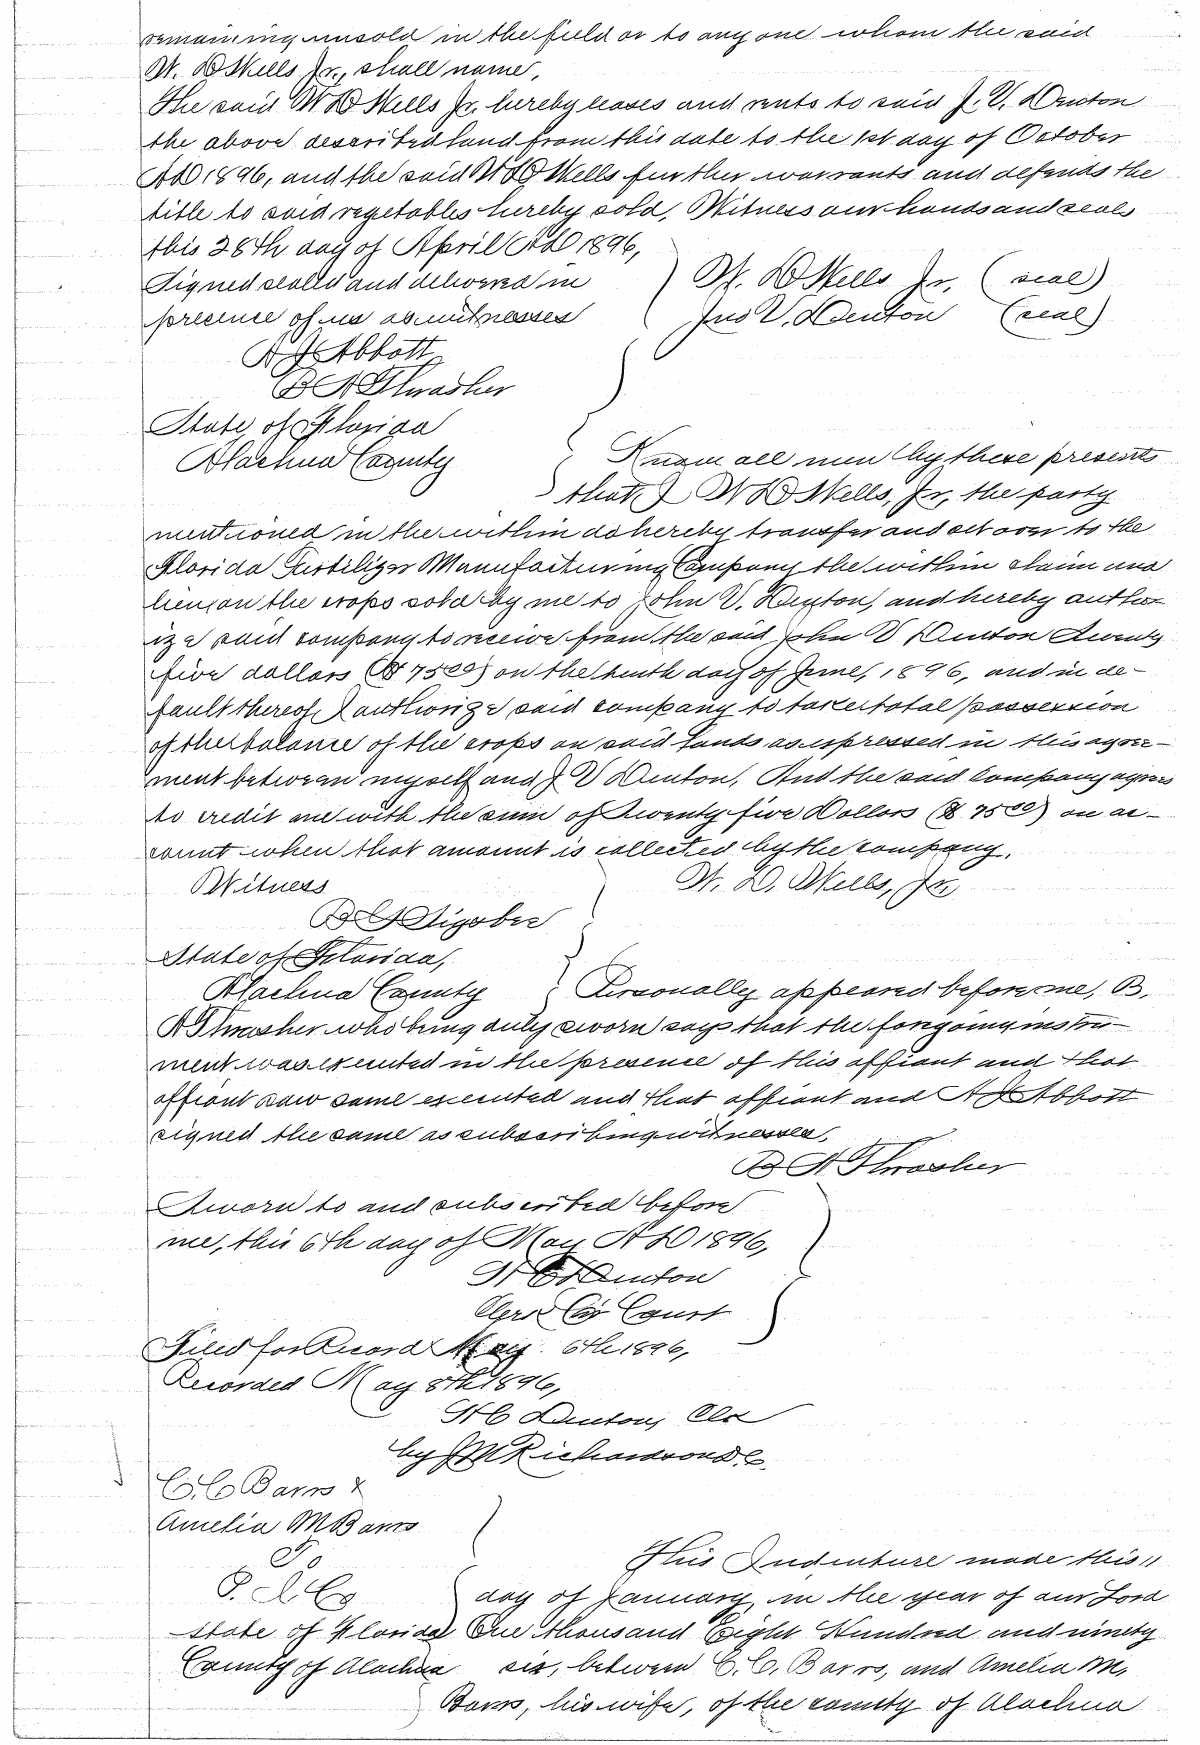 remaining unsold in the field or to any one whom the said
W. D Mills Jr., shall name,
The said W D Mills Jr. hereby leases and rents to said J. V. Denton
the above described land from this date to the 1st day of October
AD 1896, and the said W D Mills further warrants and defends the
title to said vegetables hereby sold, Witness our hands and seals
this 28th day of April AD 1896,
Signed sealed and delivered in
presence of us as witnesses
W. D Mills Jr, (seal)
Jno V. Denton (seal)
A J Abbott
B A Thrasher
State of Florida
Alachua County
Know all men by these presents
that I W D Mills, Jr, the party
mentioned in the within do hereby transfer and set over to the
Florida Furtilizer Manufacturing Company the within claim and
lien on the crops sold by me to John V. Denton, and hereby author
ize said company to receive from the said John V Denton Twenty
five dollars ($ 75 00) on the tenth day of June, 1896, and in de-
fault thereof I authorize said company to take total possession
of the balance of the crops on said lands as expressed in this agree-
ment between myself and J V Denton, And the said Company agrees
to credit me with the sum of Twenty five Dollars ($ 75 00) on ac-
count when that amount is collected by the company.
Witness
W. D. Mills, Jr
State of Florida,
Alachua County
Personally appeared before me, B.
A Thrasher who being duly sworn says that the forgoing instru-
ment was executed in the presence of this affiant and that
affiant saw same executed and that affiant and A J Abbott
signed the same as subscribing witnesses,
B A Thrasher
Sworn to and subscribed before
me, this 6th day of May AD 1896,
H C Denton
Clerk Cir Court
Filed for Record May 6th 1896,
Recorded May 8th 1896,
H C Denton, Clk
by J M Richardson D. C.
C. C Barrs &
Amelia M Barrs
To
State of Florida
County of Alachua
This Indenture made this 11
day of January, in the year of our Lord
One thousand Eight Hundred and ninety
six, between C. C. Barrs, and Amelia M.
Barrs, his wife, of the county of Alachua